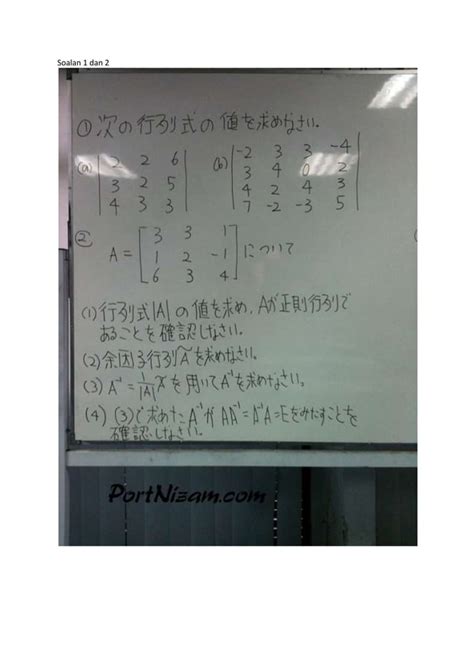 Soalan 1 dan 2
① 次の行列式の値を求めなさい.
(a) | 2 2 6 | (b) | -2 3 3 -4 |
| 3 2 5 | | 3 4 0 2 |
| 4 3 3 | | 4 2 4 3 |
| 7 -2 -3 5 |
②
A = [ 3 3 1 ] について
[ 1 2 -1 ]
[ 6 3 4 ]
(1) 行列式|A|の値を求め, Aが正則行列で
あることを確認しなさい.
(2) 余因子行列Ãを求めなさい。
(3) A⁻¹ = 1/|A| Ã を用いてA⁻¹を求めなさい。
(4) (3)で求めたA⁻¹が AA⁻¹=A⁻¹A=Eをみたすことを
確認しなさい.
PortNizam.com